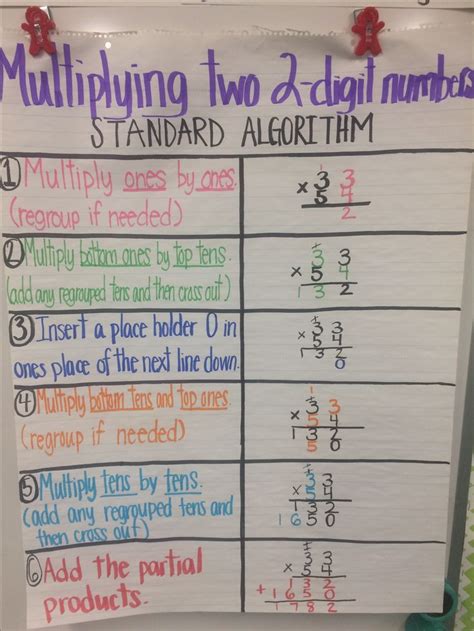 Multiplying two 2-digit numbers
STANDARD ALGORITHM
① Multiply ones by ones.
(regroup if needed)
1
33
× 54
2
② Multiply bottom ones by top tens.
(add any regrouped tens and then cross out)
1
33
× 54
132
③ Insert a place holder 0 in
ones place of the next line down.
1
33
× 54
132
0
④ Multiply bottom tens and top ones.
(regroup if needed)
1
33
× 54
132
50
⑤ Multiply tens by tens.
(add any regrouped tens and
then cross out)
1
33
× 54
132
1650
⑥ Add the partial
products.
33
× 54
132
+ 1650
1782